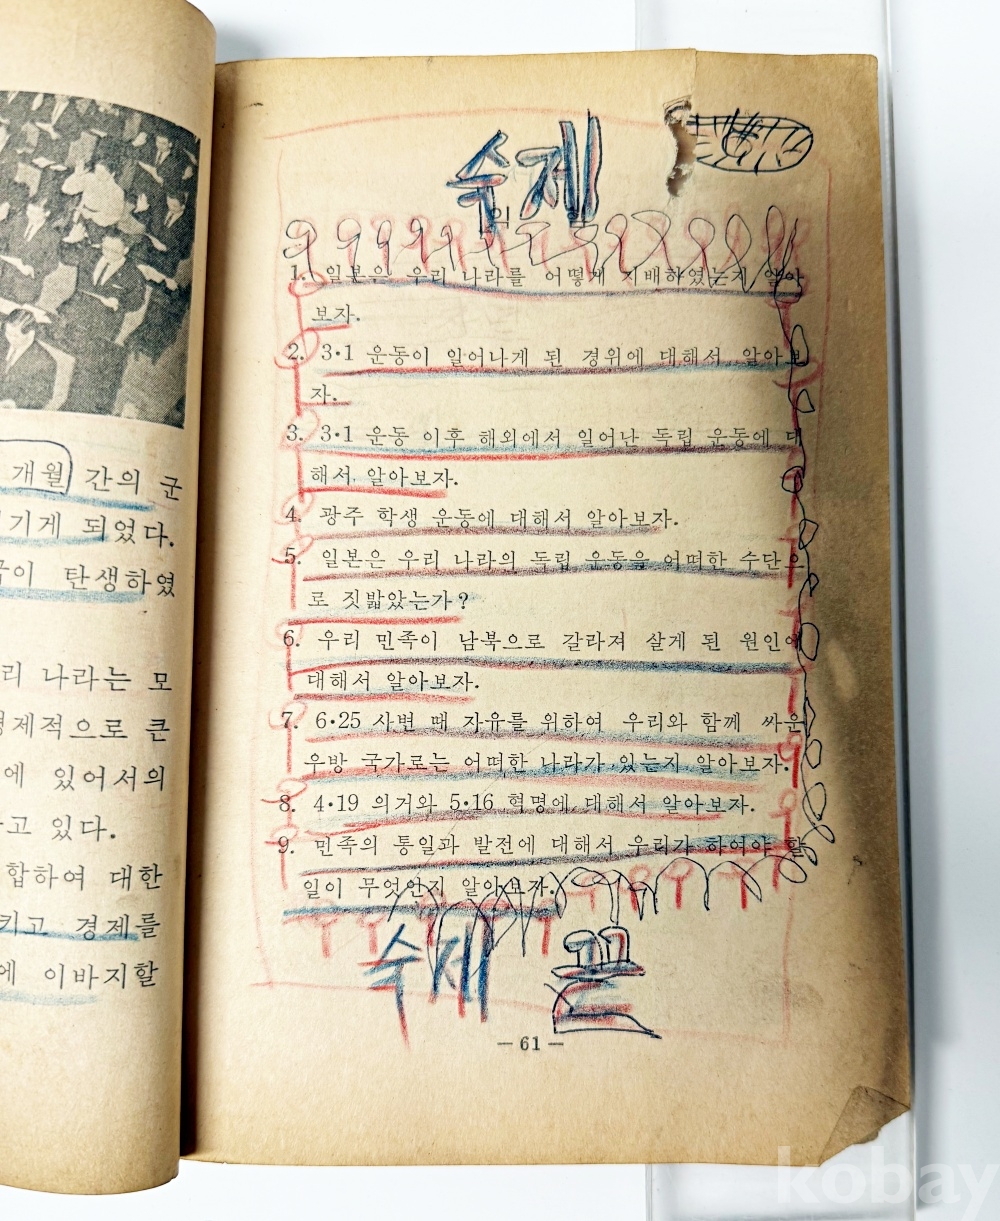 개월 간의 군
기게 되었다.
국이 탄생하였
리 나라는 모
경제적으로 큰
에 있어서의
고 있다.
합하여 대한
키고 경제를
에 이바지할
숙제
익 힘
1. 일본은 우리 나라를 어떻게 지배하였는지 알아
보자.
2. 3·1 운동이 일어나게 된 경위에 대해서 알아보
자.
3. 3·1 운동 이후 해외에서 일어난 독립 운동에 대
해서 알아보자.
4. 광주 학생 운동에 대해서 알아보자.
5. 일본은 우리 나라의 독립 운동을 어떠한 수단으
로 짓밟았는가?
6. 우리 민족이 남북으로 갈라져 살게 된 원인에
대해서 알아보자.
7. 6·25 사변 때 자유를 위하여 우리와 함께 싸운
우방 국가로는 어떠한 나라가 있는지 알아보자.
8. 4·19 의거와 5·16 혁명에 대해서 알아보자.
9. 민족의 통일과 발전에 대해서 우리가 하여야 할
일이 무엇인지 알아보자.
숙제 끝
— 61 —
kobay